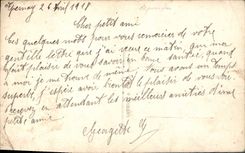 Epernay 26 Avril 1918
Cher petit ami
Ces quelques mots pour vous remercier de votre
gentille lettre que j'ai reçue ce matin, qui m'a
fait plaisir de vous savoir en bonne santé quant
à moi je me trouve de même. Nous avons un temps
superbe. J'espère avoir bientôt le plaisir de vous lire
Recevez en attendant les meilleures amitiés d'une
petite amie
Georgette